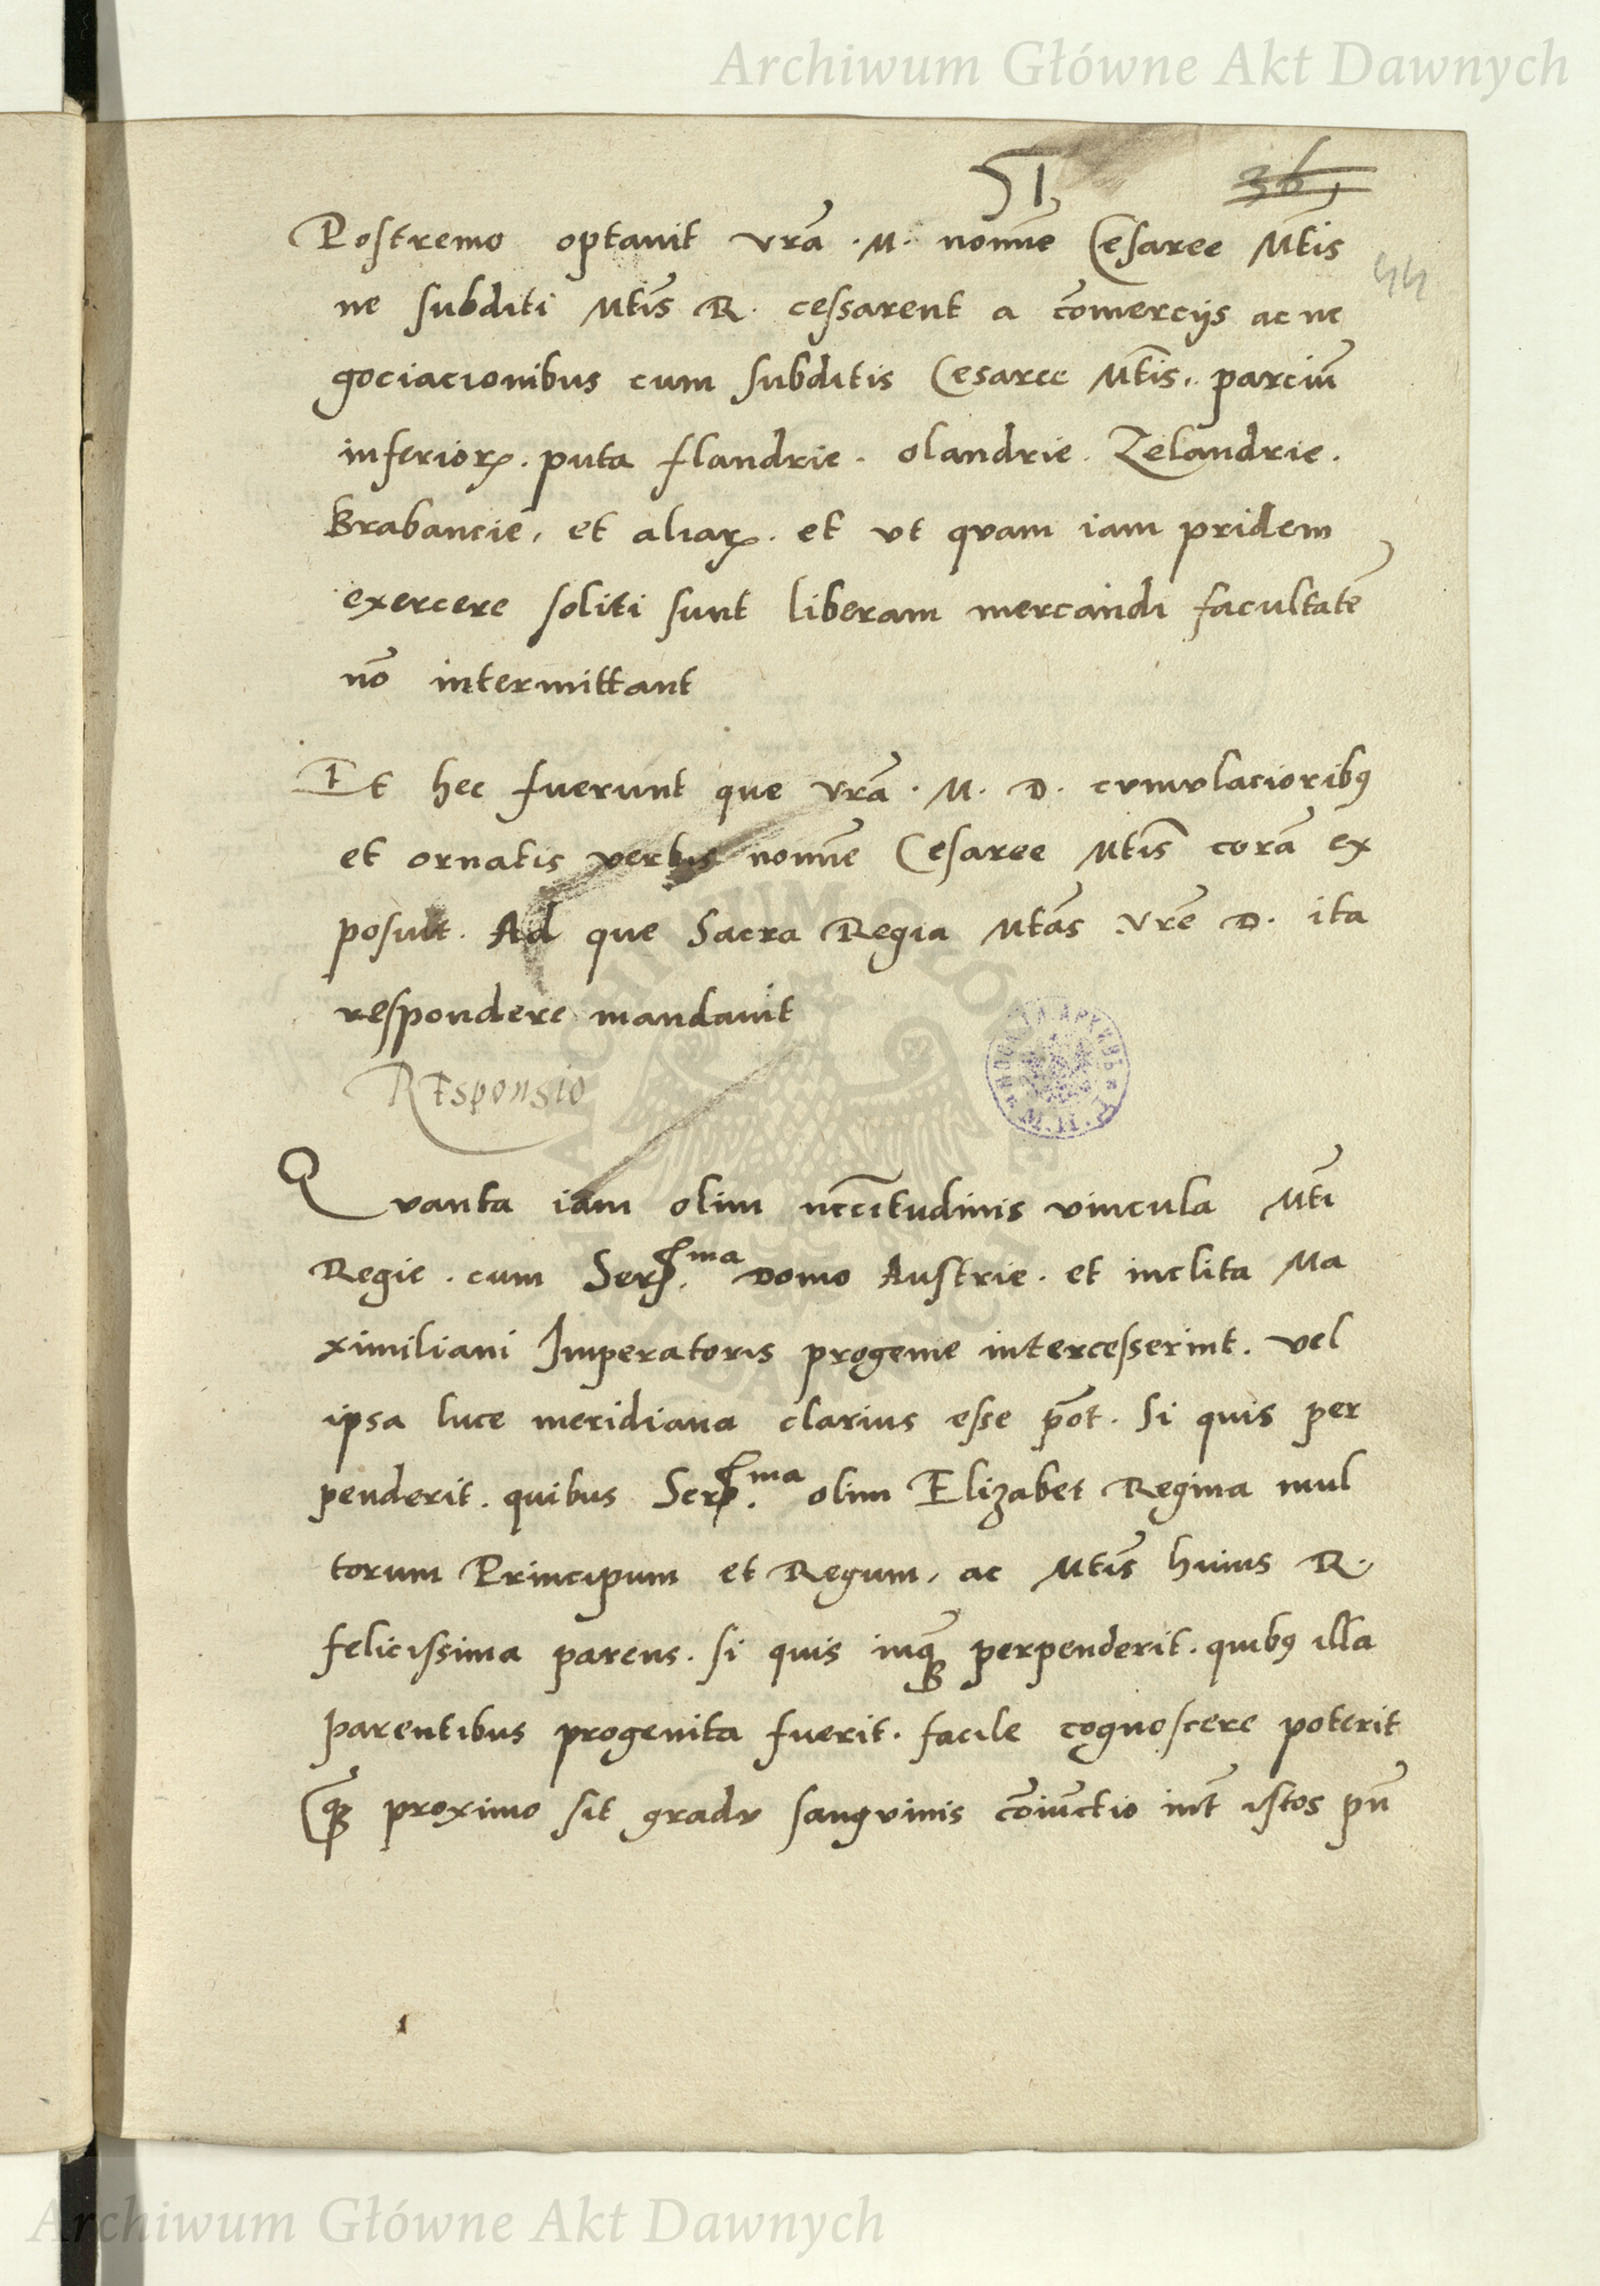 Archiwum Główne Akt Dawnych
51
36
44
Postremo optauit vrã .M. noīe Cesaree Mtis
ne subditi Mtis R. cessarent a cōmercijs ac ne
gociacionibus cum subditis Cesaree Mtis. parciū
inferioꝝ. puta flandrie. olandrie. Zelandrie.
Brabancie, et aliaꝝ. et vt quam iam pridem
exercere soliti sunt liberam mercandi facultatē
nō intermittant
Et hec fuerunt que vrã .M. D. cumulacioribꝰ
et ornatis verbis noīe Cesaree Mtis corã ex
posuit. Ad que Sacra Regia Mtas vrē D. ita
respondere mandauit
REsponsio
Qvanta iam olim nccītudinis vincula Mti
Regie. cum Ser.ma Domo Austrie. et inclita Ma
ximiliani Imperatoris progenie intercesserint. vel
ipsa luce meridiana clarius esse pōt. Si quis per
penderit. quibus Ser.ma olim Elizabet Regina mul
torum Principum et Regum, ac Mtis huius R.
felicissima parens. si quis inqȝ perpenderit. quibꝰ illa
parentibus progenita fuerit. facile cognoscere poterit
qȝ proximo sit gradu sangvinis cōiūctio int istos pn̄
Archiwum Główne Akt Dawnych